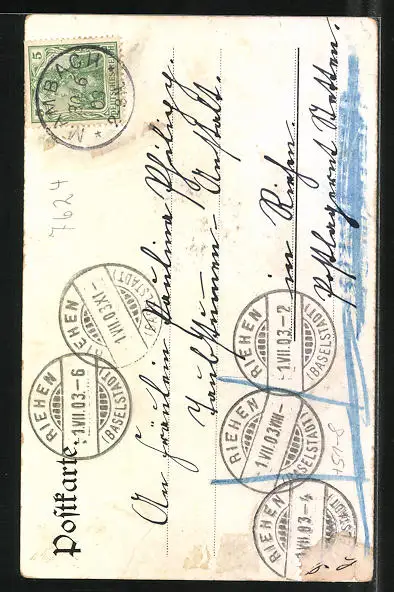 Postkarte.
5
MAMBACH
30 6 03
An Fräulein Pauline
Taubstummen-Anstalt.
in Riehen.
Postlagernd
7624
RIEHEN
1.VII.03.XI-
(BASELSTADT)
RIEHEN
1.VII.03.-6
(BASELSTADT)
RIEHEN
1.VII.03.-2
(BASELSTADT)
RIEHEN
1.VII.03.VIII-
(BASELSTADT)
RIEHEN
1.VII.03.-4
(BASELSTADT)